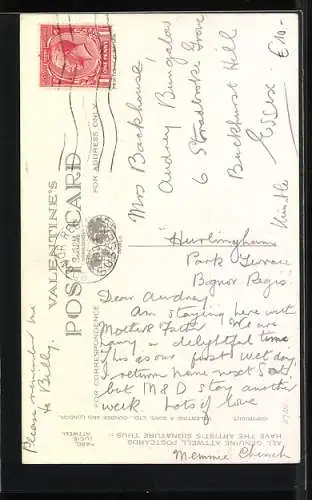 VALENTINE'S
POST CARD
FOR ADDRESS ONLY
FOR CORRESPONDENCE
ONE PENNY
Mrs Backhouse,
Audrey Bungalow
6 Stradbroke Grove
Buckhurst Hill
Essex
£10-
"Hurlingham"
Park Terrace
Bognor Regis.
Dear Audrey,
Am staying here with
Mother & Father. We are
having a delightful time
This is our first wet day,
I return home next Sat,
but M & D stay another
week. Lots of love
Please remember me
to Billy.
COPYRIGHT
VALENTINE & SONS, LTD. DUNDEE AND LONDON
ALL GENUINE ATTWELL POSTCARDS
HAVE THE ARTIST'S SIGNATURE THUS:-
MABEL
LUCIE
ATTWELL